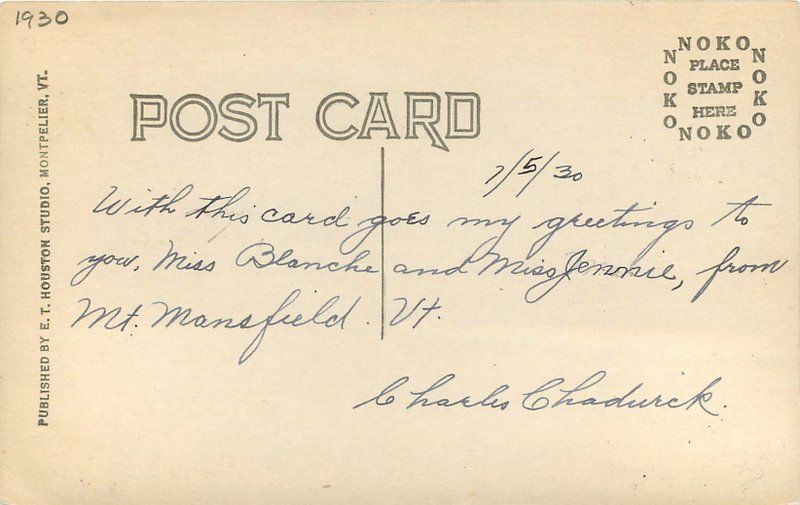 1930
NOKO
NOKO
PLACE
STAMP
HERE
NOKO
NOKO
POST CARD
PUBLISHED BY E. T. HOUSTON STUDIO, MONTPELIER, VT.
7/5/30
With this card goes my greetings to
you, Miss Blanche and Miss Jennie, from
Mt. Mansfield. Vt.
Charles Chadwick.